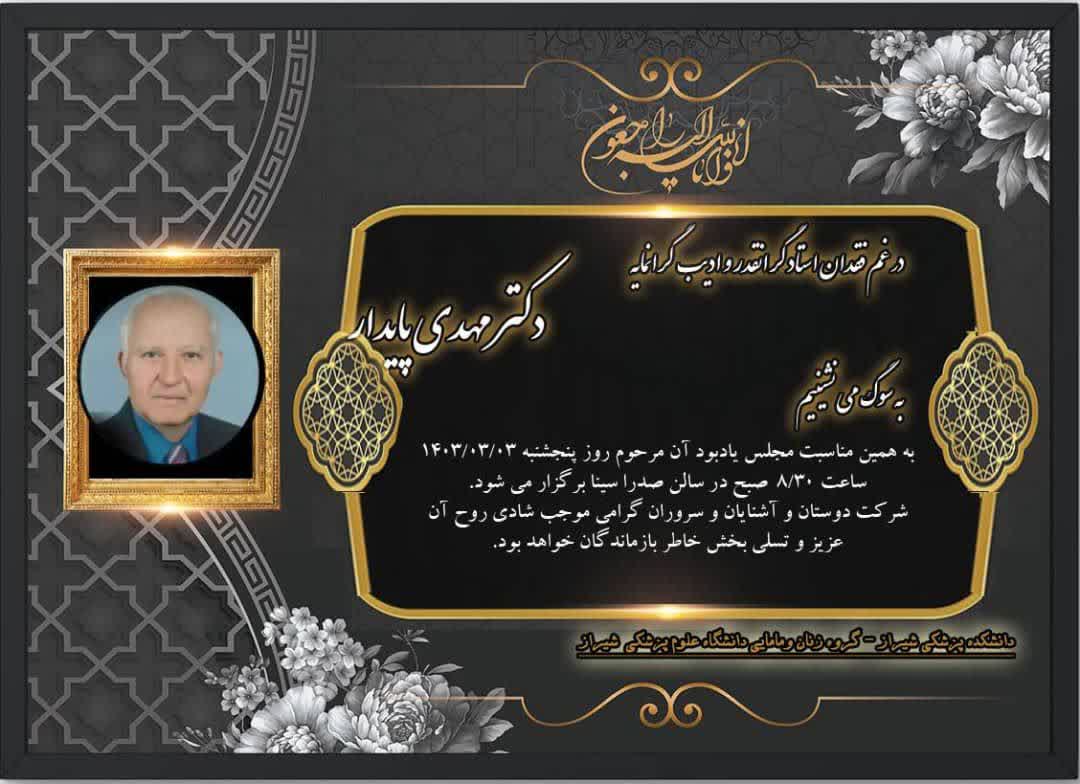 انا لله و انا الیه راجعون
در غم فقدان استاد گرانقدر و ادیب گرانمایه
دکتر مهدی پایدار
به سوگ می نشینیم
به همین مناسبت مجلس یادبود آن مرحوم روز پنجشنبه ۱۴۰۳/۰۳/۰۳
ساعت ۸/۳۰ صبح در سالن صدرا سینا برگزار می شود.
شرکت دوستان و آشنایان و سروران گرامی موجب شادی روح آن
عزیز و تسلی بخش خاطر بازماندگان خواهد بود.
دانشکده پزشکی شیراز - گروه زنان و مامایی دانشگاه علوم پزشکی شیراز